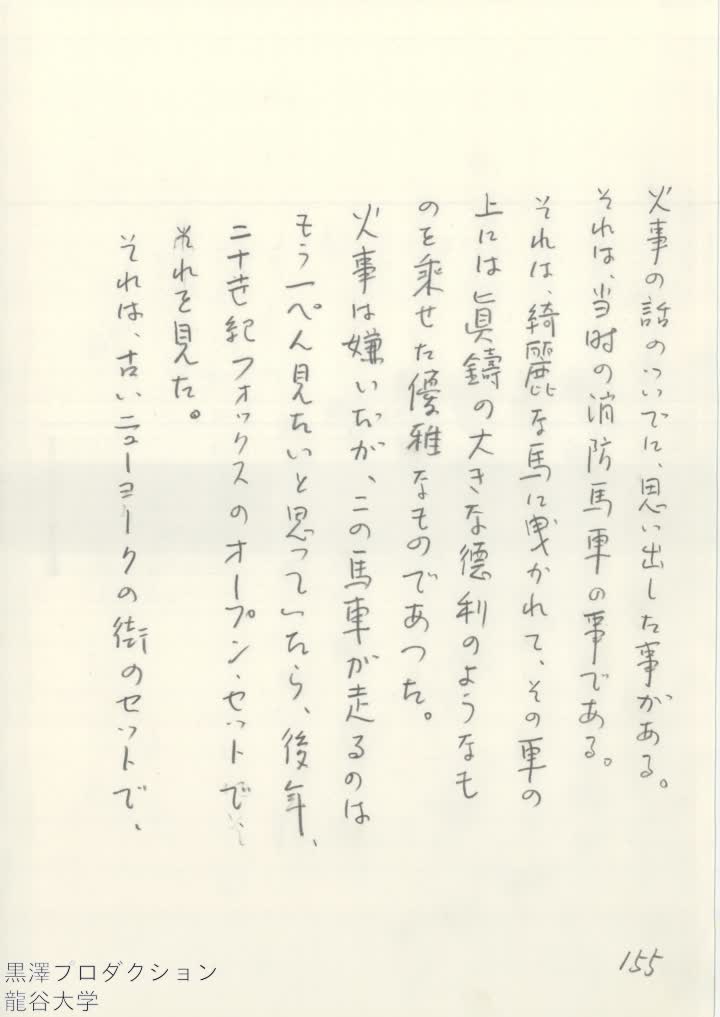 火事の話のついでに、思い出した事がある。
それは、当时の消防馬車の事である。
それは、綺麗な馬に曳かれて、その車の
上には眞鋳の大きな徳利のようなも
のを乗せた優雅なものであつた。
火事は嫌いだが、この馬車が走るのは
もう一ぺん見たいと思っていたら、後年、
二十世紀フォックスのオープン・セットで、
それを見た。
それは、古いニューヨークの街のセットで、
155
黒澤プロダクション
龍谷大学